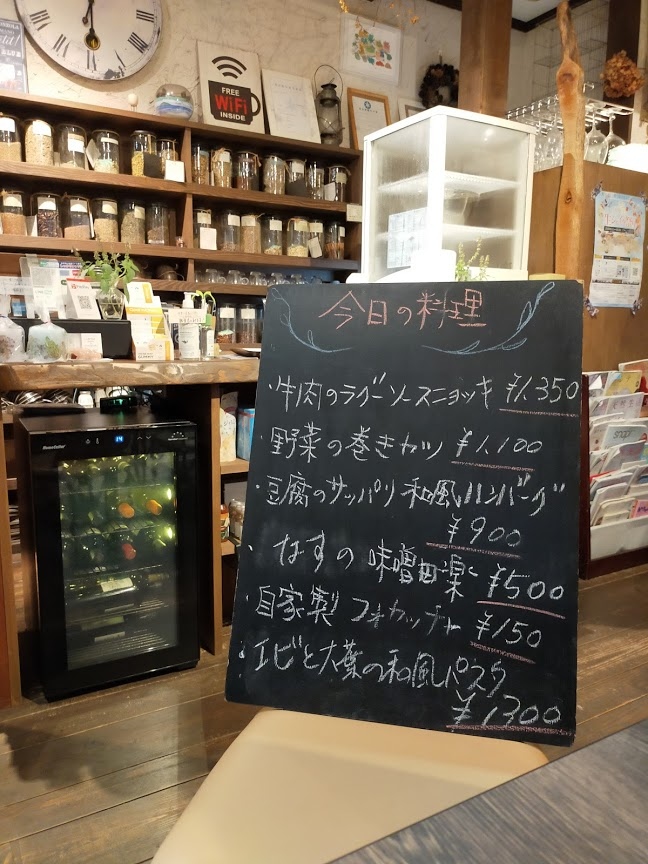 FREE
WiFi
INSIDE
今日の料理
・牛肉のラグーソースニョッキ ¥1.350
・野菜の巻きカツ ¥1.100
・豆腐のサッパリ和風ハンバーグ
¥900
・なすの味噌田楽 ¥500
・自家製フォカッチャ ¥150
・エビと大葉の和風パスタ
¥1300
14